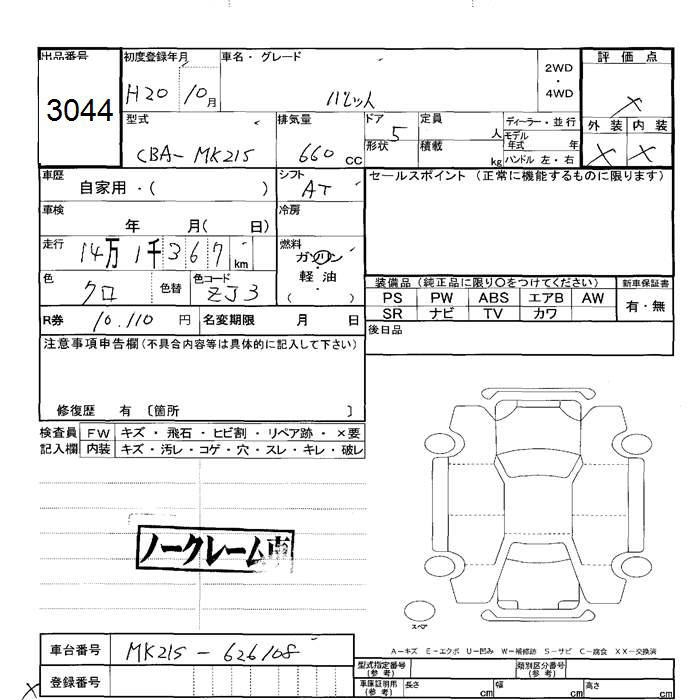 出品番号 初度登録年月 車名・グレード 評価点
3044 H20 10月 パレット 2WD・4WD ×
型式 排気量 ドア 定員 ディーラー・並行 外装 内装
CBA-MK21S 660cc 5 人 モデル年式 年 × ×
形状 積載 kg ハンドル 左・右
車歴 シフト セールスポイント (正常に機能するものに限ります)
自家用・( ) AT
車検 年 月( 日) 冷房
走行 14万1千367km 燃料 ガソリン・軽油・( )
色 クロ 色替 色コード ZJ3
装備品 (純正品に限り〇をつけてください) 新車保証書
PS PW ABS エアB AW 有・無
SR ナビ TV カワ
R券 10,110 円 名変期限 月 日 後日品
注意事項申告欄(不具合内容等は具体的に記入して下さい)
修復歴 有 〔箇所 〕
検査員 FW キズ・飛石・ヒビ割・リペア跡・×要
記入欄 内装 キズ・汚レ・コゲ・穴・スレ・キレ・破レ
ノークレーム車
スペア
A－キズ E－エクボ U－凹み W－補修跡 S－サビ C－腐食 XX－交換済
車台番号 MK21S-626108
登録番号
型式指定番号(参考) 類別区分番号(参考)
車庫証明用(参考) 長さ cm 幅 cm 高さ cm